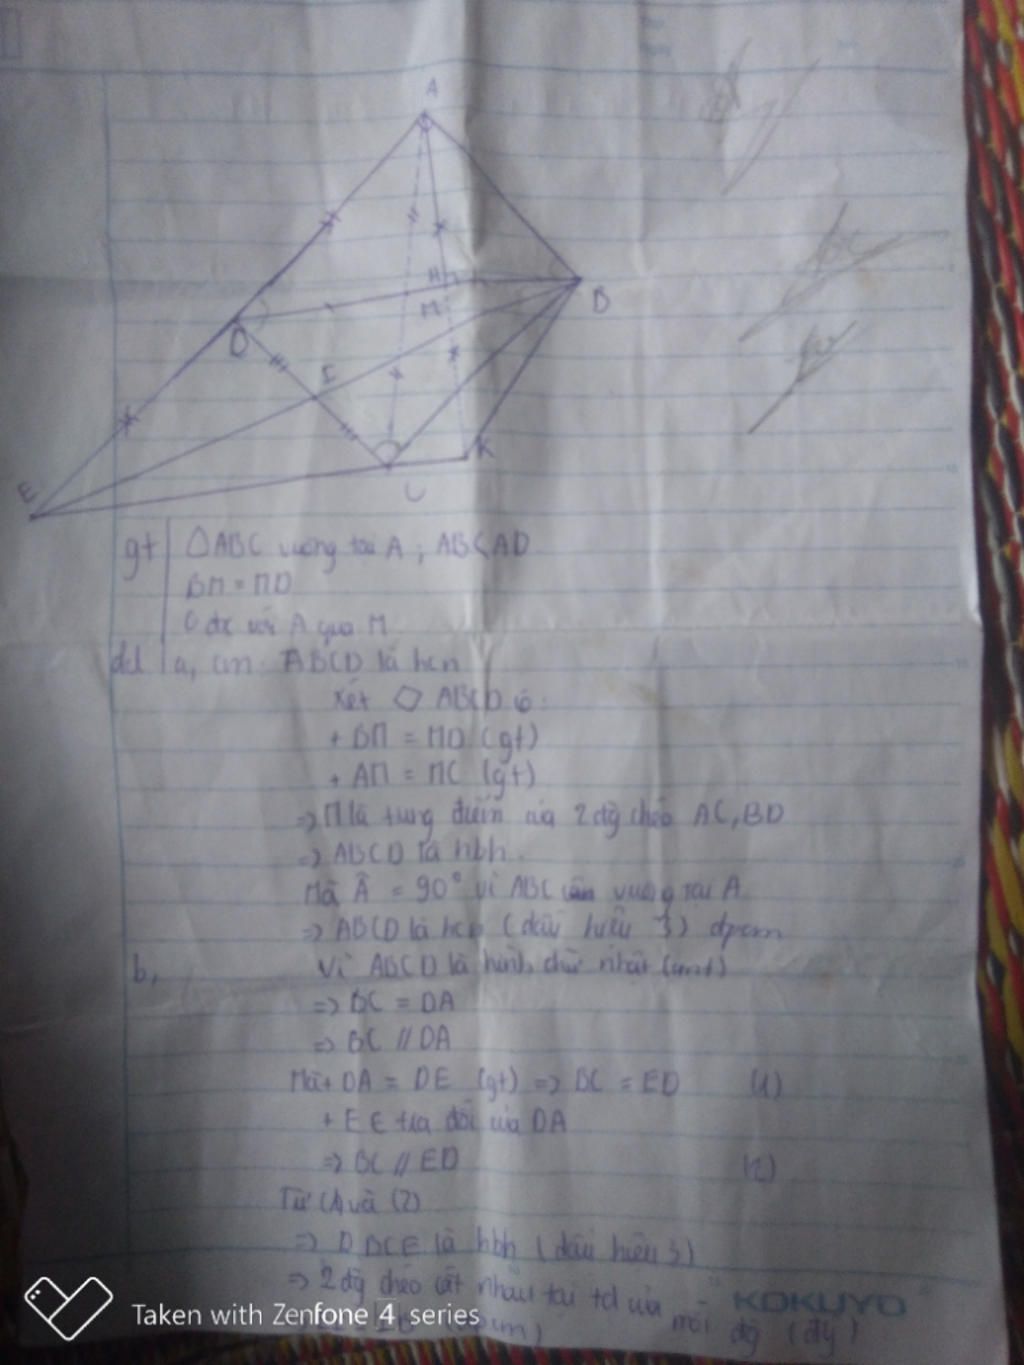 A
H
M
B
D
I
E
C
K
gt ΔABC vuông tại A ; AB<AD
BM = MD
C đx với A qua M
a, cm: ABCD là hcn
Xét ABCD có:
+ BM = MD (gt)
+ AM = MC (gt)
=> M là trung điểm của 2 đg chéo AC, BD
=> ABCD là hbh.
Mà Â = 90° vì ABC vuông tại A
=> ABCD là hcn (dấu hiệu 3) đpcm
b, Vì ABCD là hình chữ nhật (cmt)
=> BC = DA
=> BC // DA
Mà + DA = DE (gt) => BC = ED (1)
+ E ∈ tia đối của DA
=> BC // ED (2)
Từ (1) và (2)
=> DBCE là hbh (dấu hiệu 3)
=> 2 đg chéo cắt nhau tại tđ của mỗi đg (đlý)
KOKUYO
Taken with Zenfone 4 series